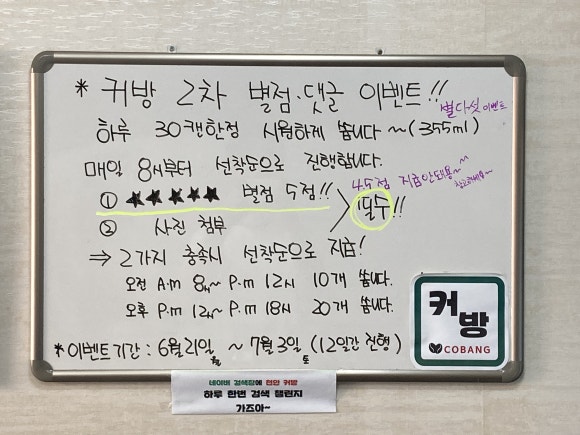 * 커방 2차 별점·댓글 이벤트!!
별다섯 이벤트
하루 30캔한정 시원하게 쏩니다~(355ml)
매일 8시부터 선착순으로 진행합니다.
4.5점 지급안돼용~~
참고하세용~
① ★★★★★ 별점 5점!!
② 사진 첨부
필수!!
⇒ 2가지 충족시 선착순으로 지급!
오전 A.m 8시~ P.m 12시 10개 쏩니다.
오후 P.m 12시~ P.m 18시 20개 쏩니다.
* 이벤트기간 : 6월21일 ~ 7월3일 (12일간 진행)
월 토
커방
COBANG
네이버 검색창에 천안 커방
하루 한번 검색 챌린지
가즈아~